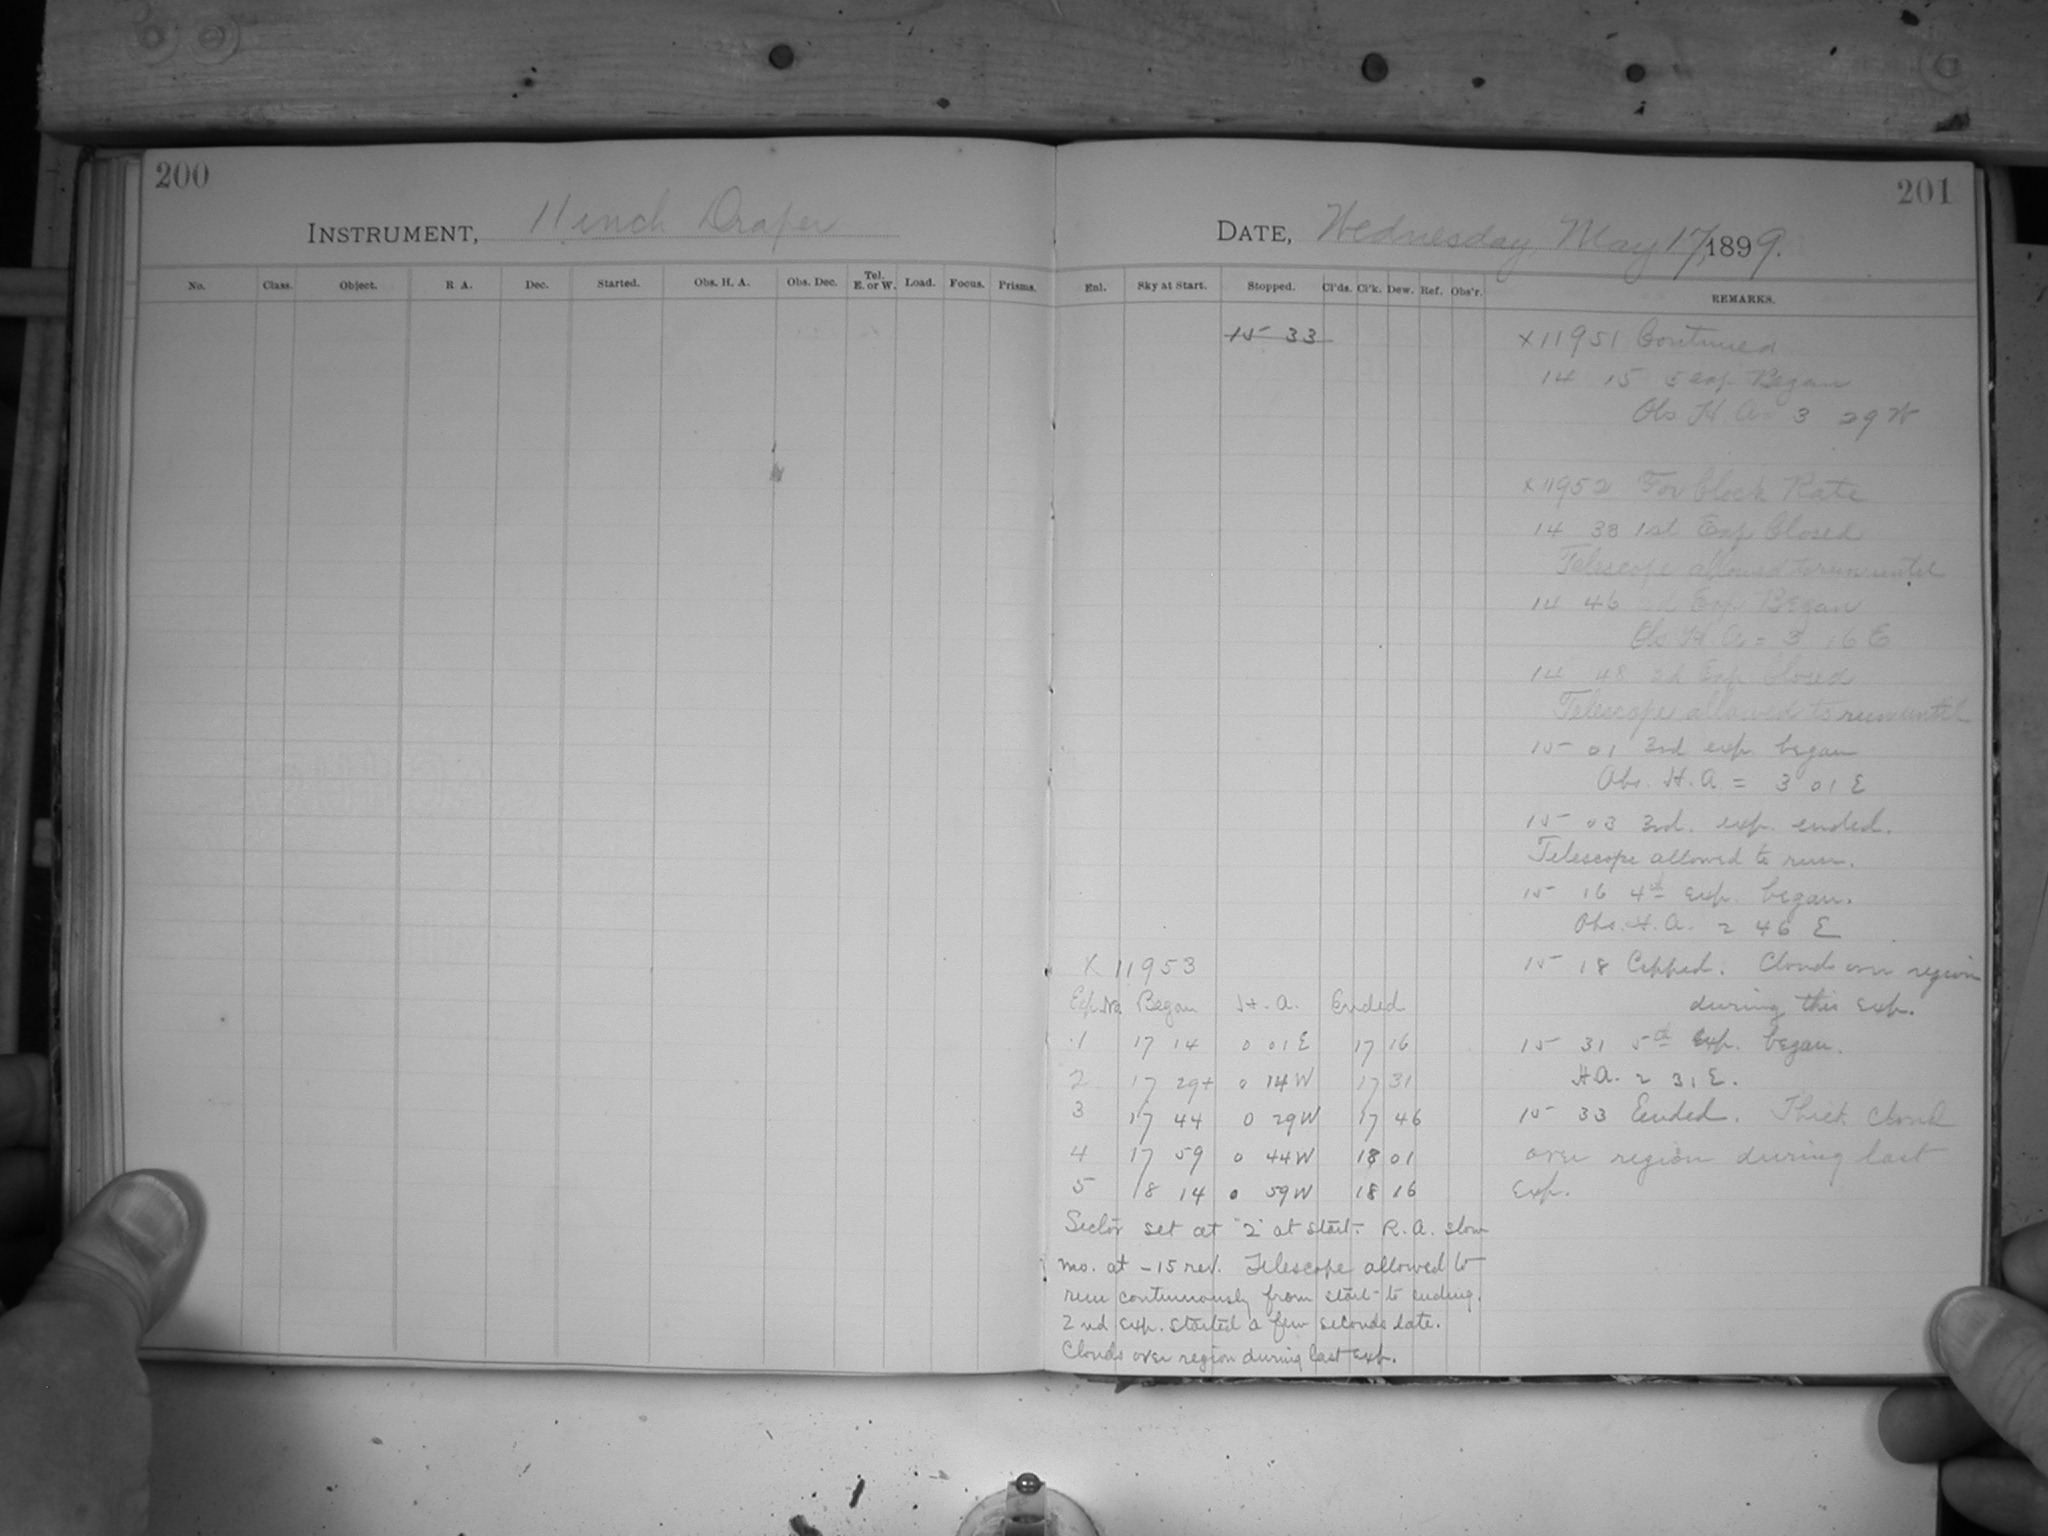 200
INSTRUMENT, 11 inch Draper
No. Class. Object. R A. Dec. Started. Obs. H. A. Obs. Dec. Tel. E. or W. Load. Focus. Prisms.
201
DATE, Wednesday, May 17, 1899.
Enl. Sky at Start. Stopped. Cl'ds. Cl'k. Dew. Ref. Obs'r. REMARKS.
15 33
X 11951 Continued
14 15 5 exp Began
Obs H. A = 3 29 W
X 11952 For Clock Rate
14 33 1st Exp Closed
Telescope allowed to run until
14 46 2d Exp Began
Obs H. A = 3 16 E
14 48 2d Exp Closed
Telescope allowed to run until
15 01 3rd exp. began
Obs. H. A. = 3 01 E
15 03 3rd. exp. ended.
Telescope allowed to run.
15 16 4th exp. began.
Obs. H. A. 2 46 E
15 18 Capped. Clouds over region
during this exp.
15 31 5th Exp. began.
H A. 2 31 E.
15 33 Ended. Thick cloud
over region during last
exp.
X 11953
Exp. No. Began H. A. Ended
1 17 14 0 01 E 17 16
2 17 29+ 0 14 W 17 31
3 17 44 0 29 W 17 46
4 17 59 0 44 W 18 01
5 18 14 0 59 W 18 16
Sector set at "2" at start. R. A. slow
mo. at -15 rev. Telescope allowed to
run continuously from start to ending.
2nd exp. started a few seconds late.
Clouds over region during last exp.